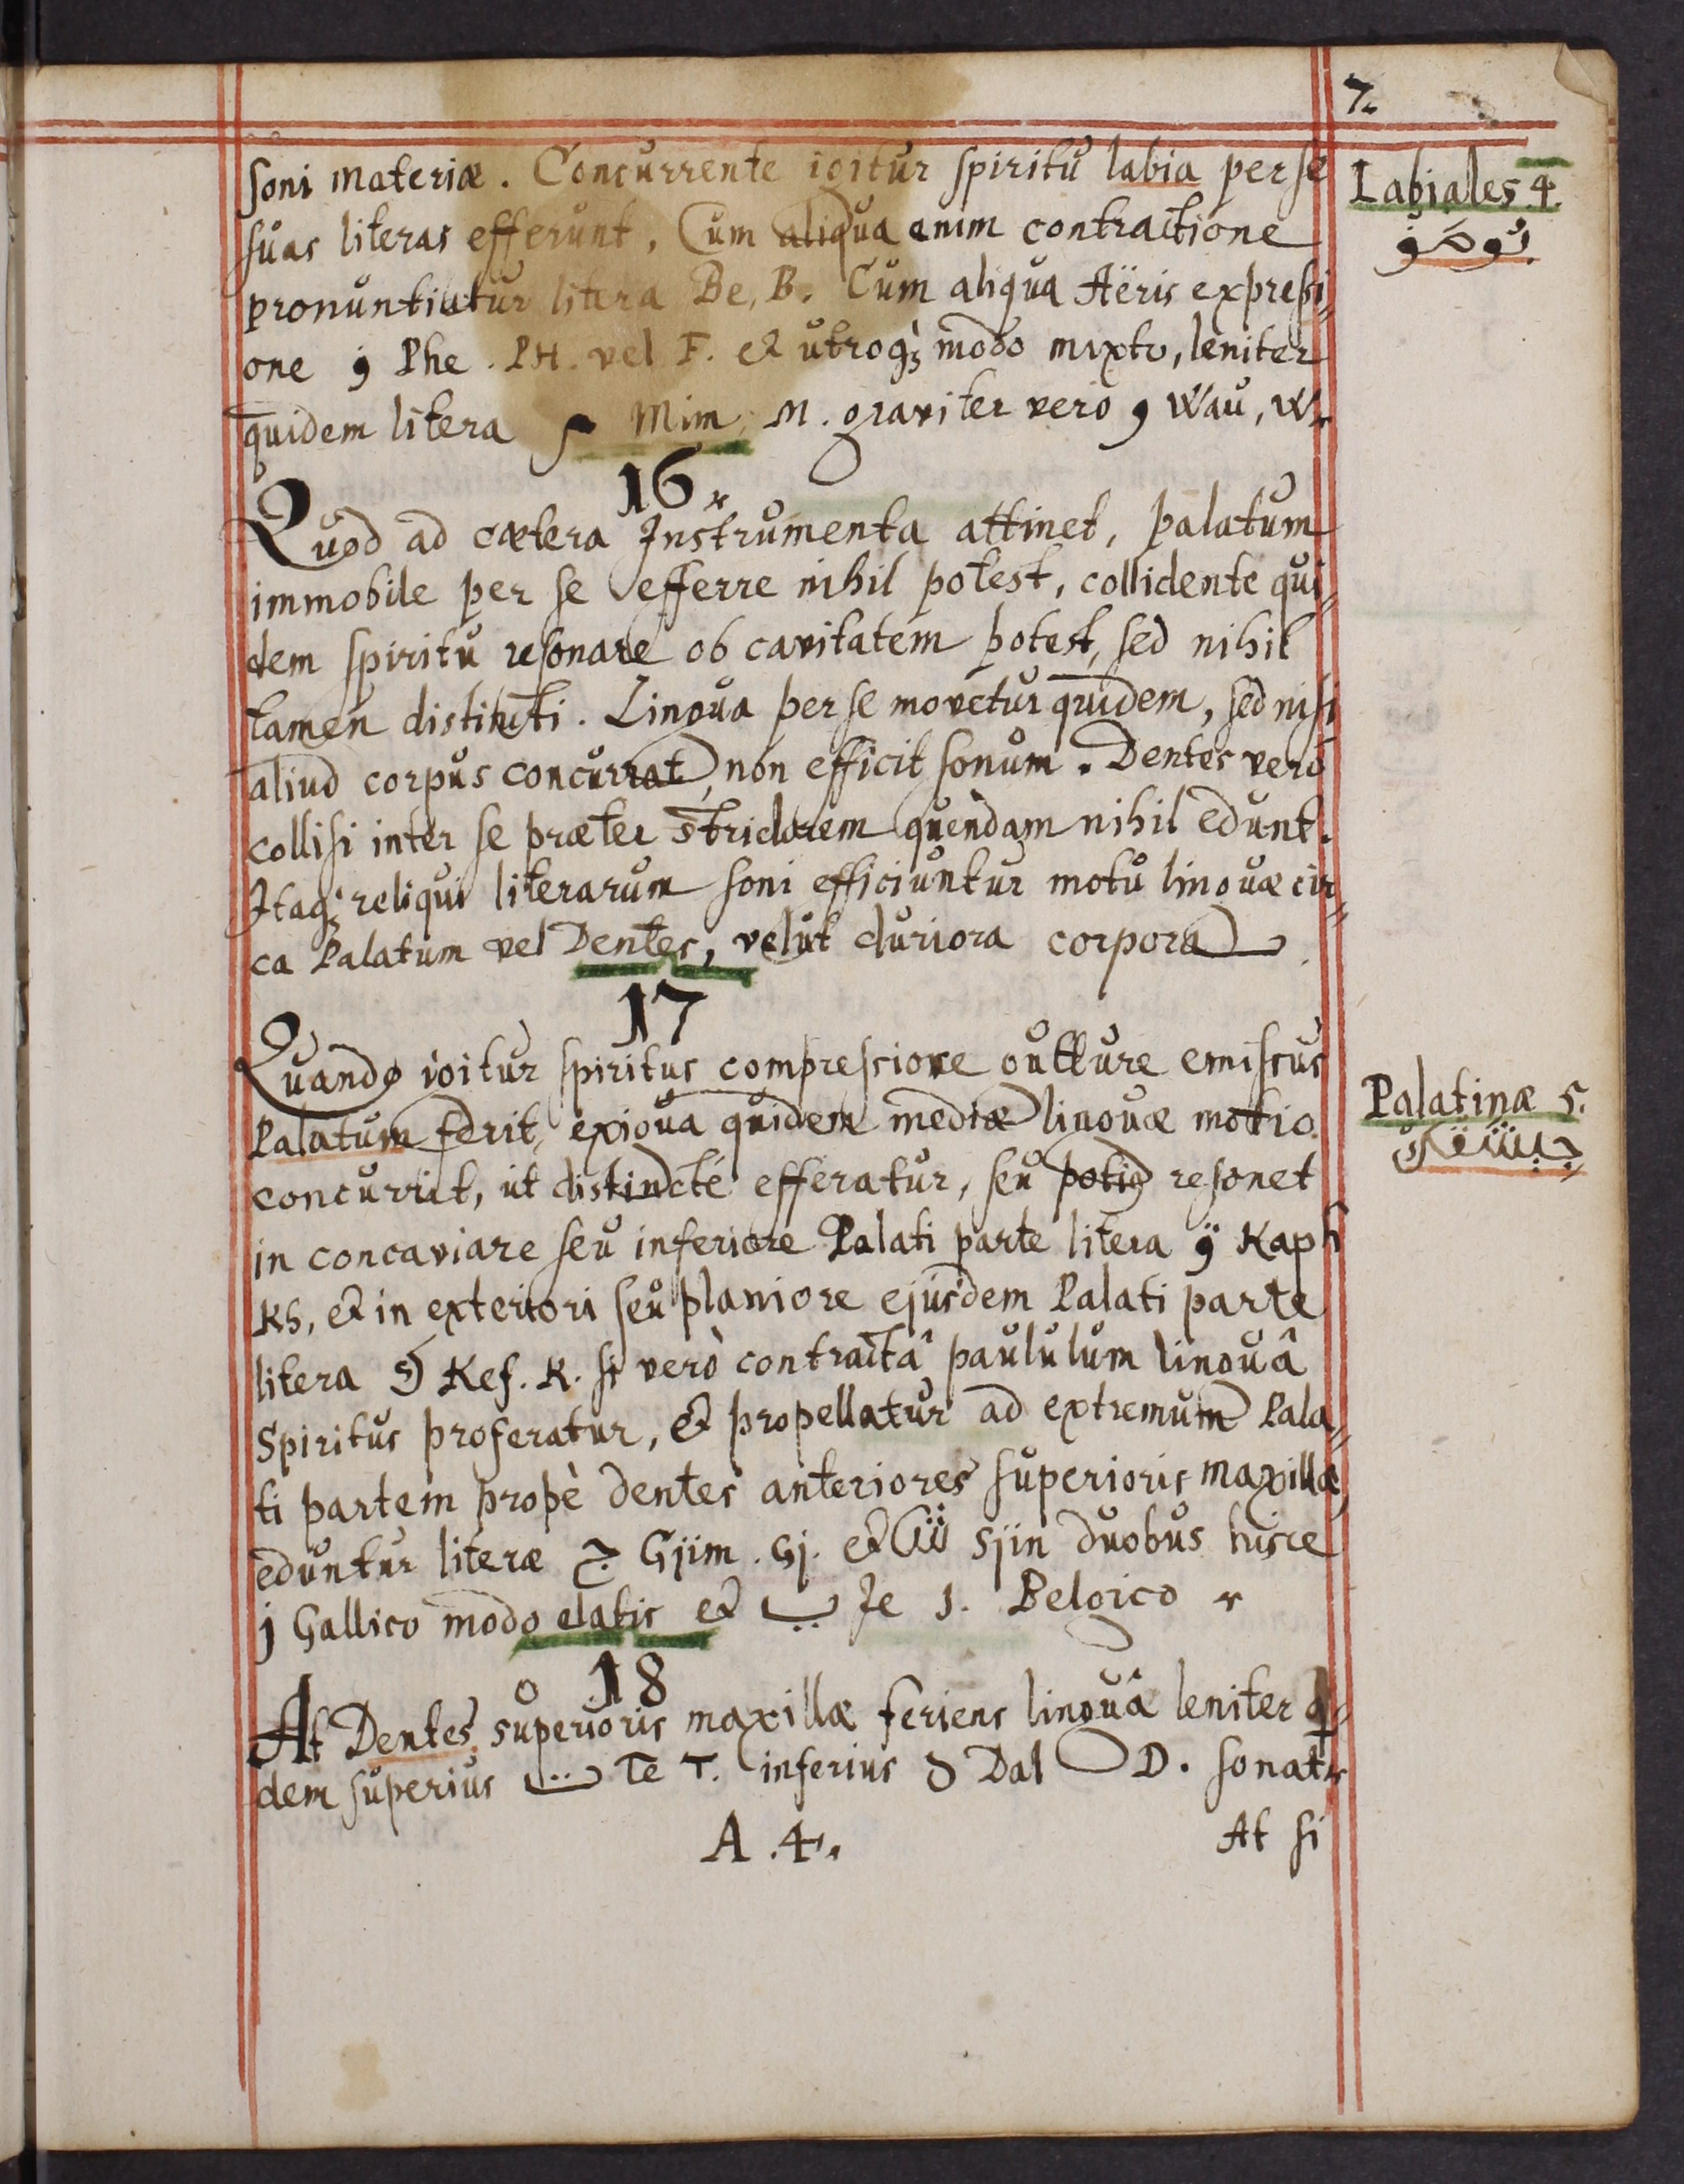 7.
soni materiæ. Concurrente igitur spiritu labia per se
suas literas efferunt, Cum aliqua enim contractione
pronuntiatur litera Be, B. Cum aliqua Aëris expressi,,
one و Phe. PH. vel F. et utroqȝ modo mixto, leniter
quidem litera م Mim, M. graviter vero و Wau, W.
Labiales 4.
بومو
16.
Quod ad cætera Instrumenta attinet, palatum
immobile per se efferre nihil potest, collidente qui,,
dem spiritu resonare ob cavitatem potest, sed nihil
tamen distincti. Lingua per se movetur quidem, sed nisi
aliud corpus concurrat, non efficit sonum. Dentes vero
collisi inter se præter stridorem quendam nihil edunt.
Itaqȝ reliqui literarum soni efficiuntur motu linguæ cir,,
ca Palatum vel Dentes, velut duriora corpora.
17
Quando igitur spiritus compressiore gutture emissus
Palatum ferit, exigua quidem mediæ linguæ motio
concurrit, ut distincté efferatur, seu potiꝰ resonet
in concaviare seu inferiore Palati parte litera ق Kaph
Kh, et in exteriori seu planiore ejusdem Palati parte
litera ك Kef. K. si verò contractâ paululum linguâ
Spiritus proferatur, et propellatur ad extremum Pala,,
ti partem propè dentes anteriores superioris maxillæ,
eduntur literæ ج Gjim. Gj. et ش Sjin duobus hisce
j Gallico modo elatis et ي Je J. Belgico
Palatinæ 5.
جيشقك
18
At Dentes superioris maxillæ feriens linguâ leniter q,,
dem superius ت Te T. inferius د Dal D. sonat
A.4. At si